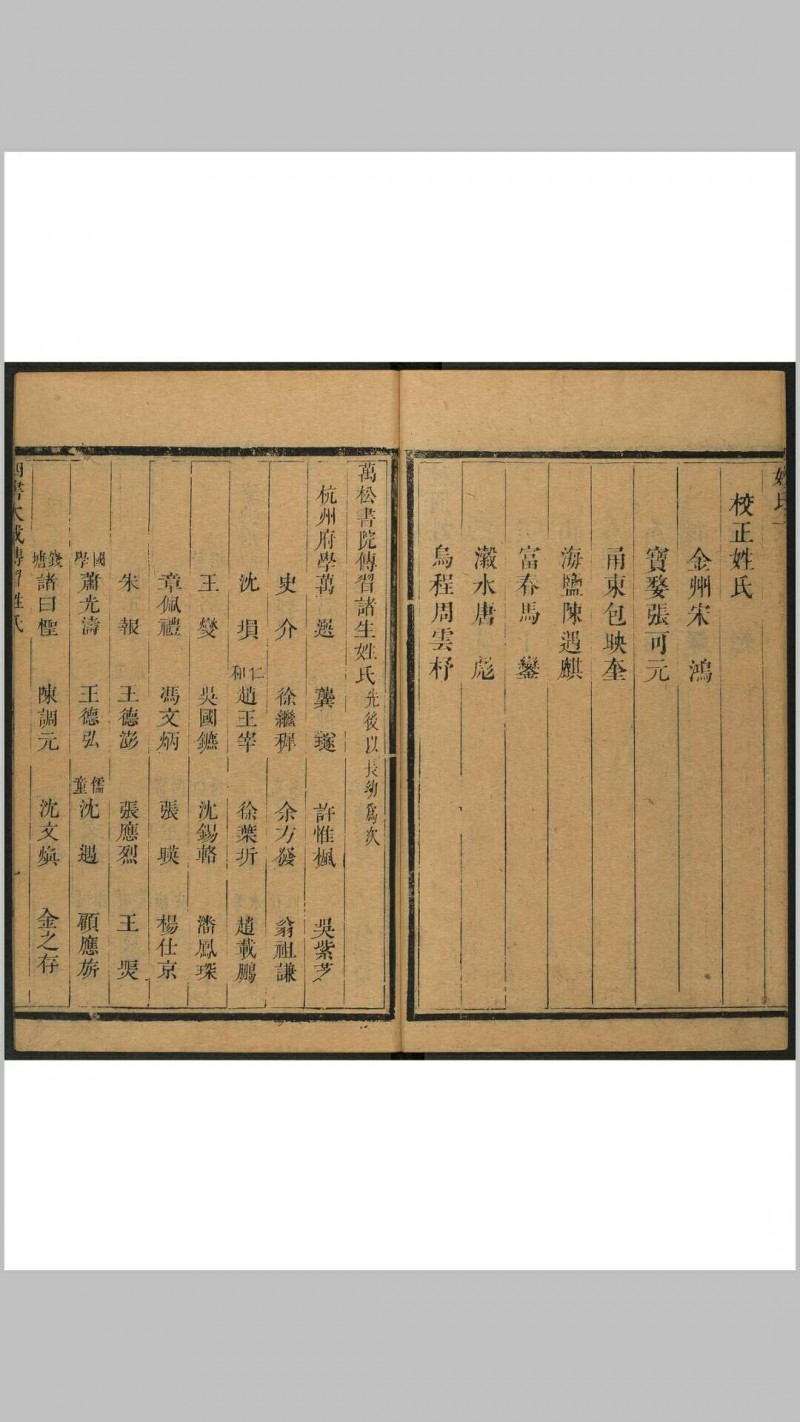 姓氏
校正姓氏
金州宋鴻
寶婺張可元
甬東包映奎
海鹽陳遇麒
富春馬鑾
瀫水唐彪
烏程周雲杼
萬松書院傳習諸生姓氏先後以長幼爲次
杭州府學萬選 龔璲 許惟楓 吳紫芝
史介 徐繼穉 余方發 翁祖謙
沈塤 仁和趙王宰 徐葉圻 趙載鵬
王燮 吳國鑣 沈錫輅 潘鳳琛
章佩禮 馮文炳 張暎 楊仕京
朱報 王德澎 張應烈 王煚
國學蕭光濤 王德弘 儒童沈遇 顧應旂
錢塘諸曰檉 陳調元 沈文煥 金之存
四書大成傳習姓氏